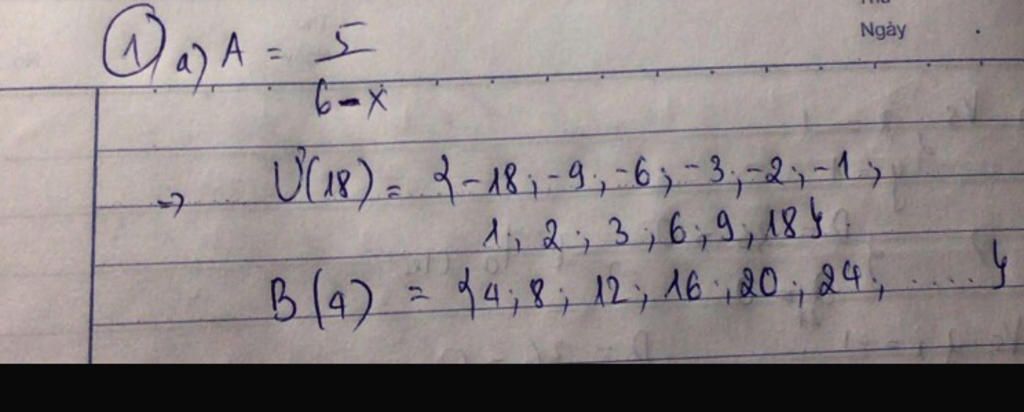 Ngày
1) a) A = 5
6-x
=> Ư(18) = {-18; -9; -6; -3; -2; -1;
1; 2; 3; 6; 9; 18}
B(4) = {4; 8; 12; 16; 20; 24; .....}